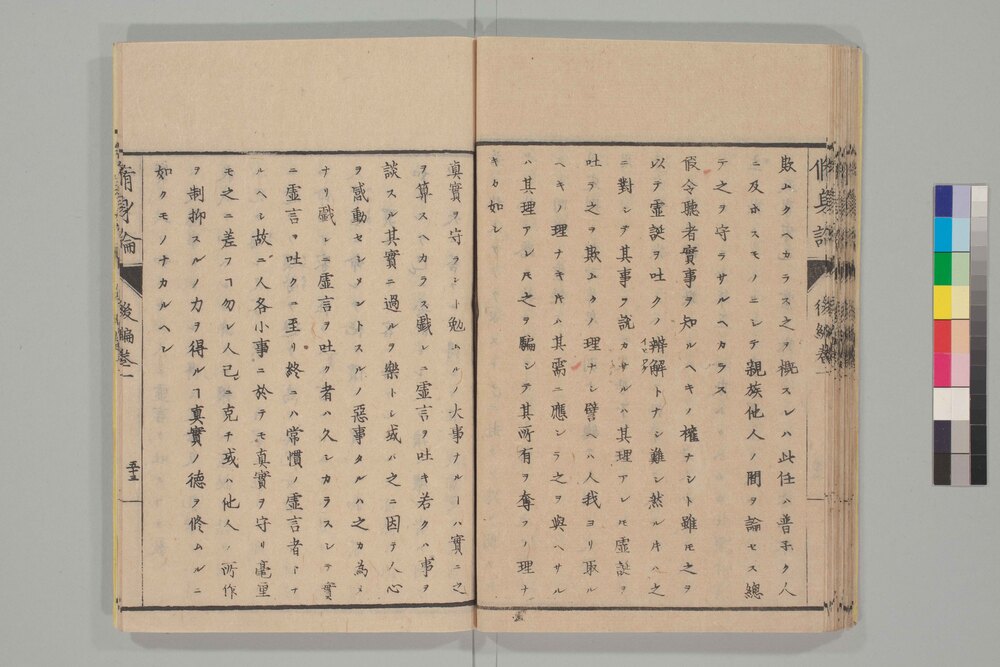 修身論
後編卷一
欺ムクヘカラス之ヲ概スレハ此任ハ普子ク人
ニ及ホスモノニシテ親族他人ノ間ヲ論セス總
テ之ヲ守ラサルヘカラス
假令聽者實事ヲ知ルヘキノ權ナシト雖𪜈之ヲ
以テ虚誕ヲ吐クノ辨解トナシ難シ然ルキハ之
ニ對シテ其事ヲ說カサルハ其理アレ𪜈虚誕ヲ
吐テ之ヲ欺ムクノ理ナシ譬ヘハ人我ヨリ取ル
ヘキノ理ナキキハ其需ニ應シテ之ヲ與ヘサル
ハ其理アレ𪜈之ヲ騙シテ其所有ヲ奪フノ理ナ
キカ如シ
真實ヲ守ラント勉ムルノ大事ナルヿハ實ニ之
ヲ算スヘカラス戯レニ虚言ヲ吐キ若クハ事ヲ
談スル其實ニ過ルヲ樂トシ或ハ之ニ因テ人心
ヲ感動セシメントスルノ惡事タルハ之カ為メ
ナリ戯レニ虚言ヲ吐ク者ハ久シカラスシテ實
ニ虚言ヲ吐クニ至リ終ニハ常慣ノ虚言者トナ
ルヘシ故ニ人各小事ニ於テモ真實ヲ守リ毫厘
モ之ニ差フヿ勿レ人已ニ克チ或ハ他人ノ所作
ヲ制抑スルノ力ヲ得ルヿ真實ノ德ヲ修ムルニ
如クモノナカルヘシ
脩身論
後編卷一
五十五